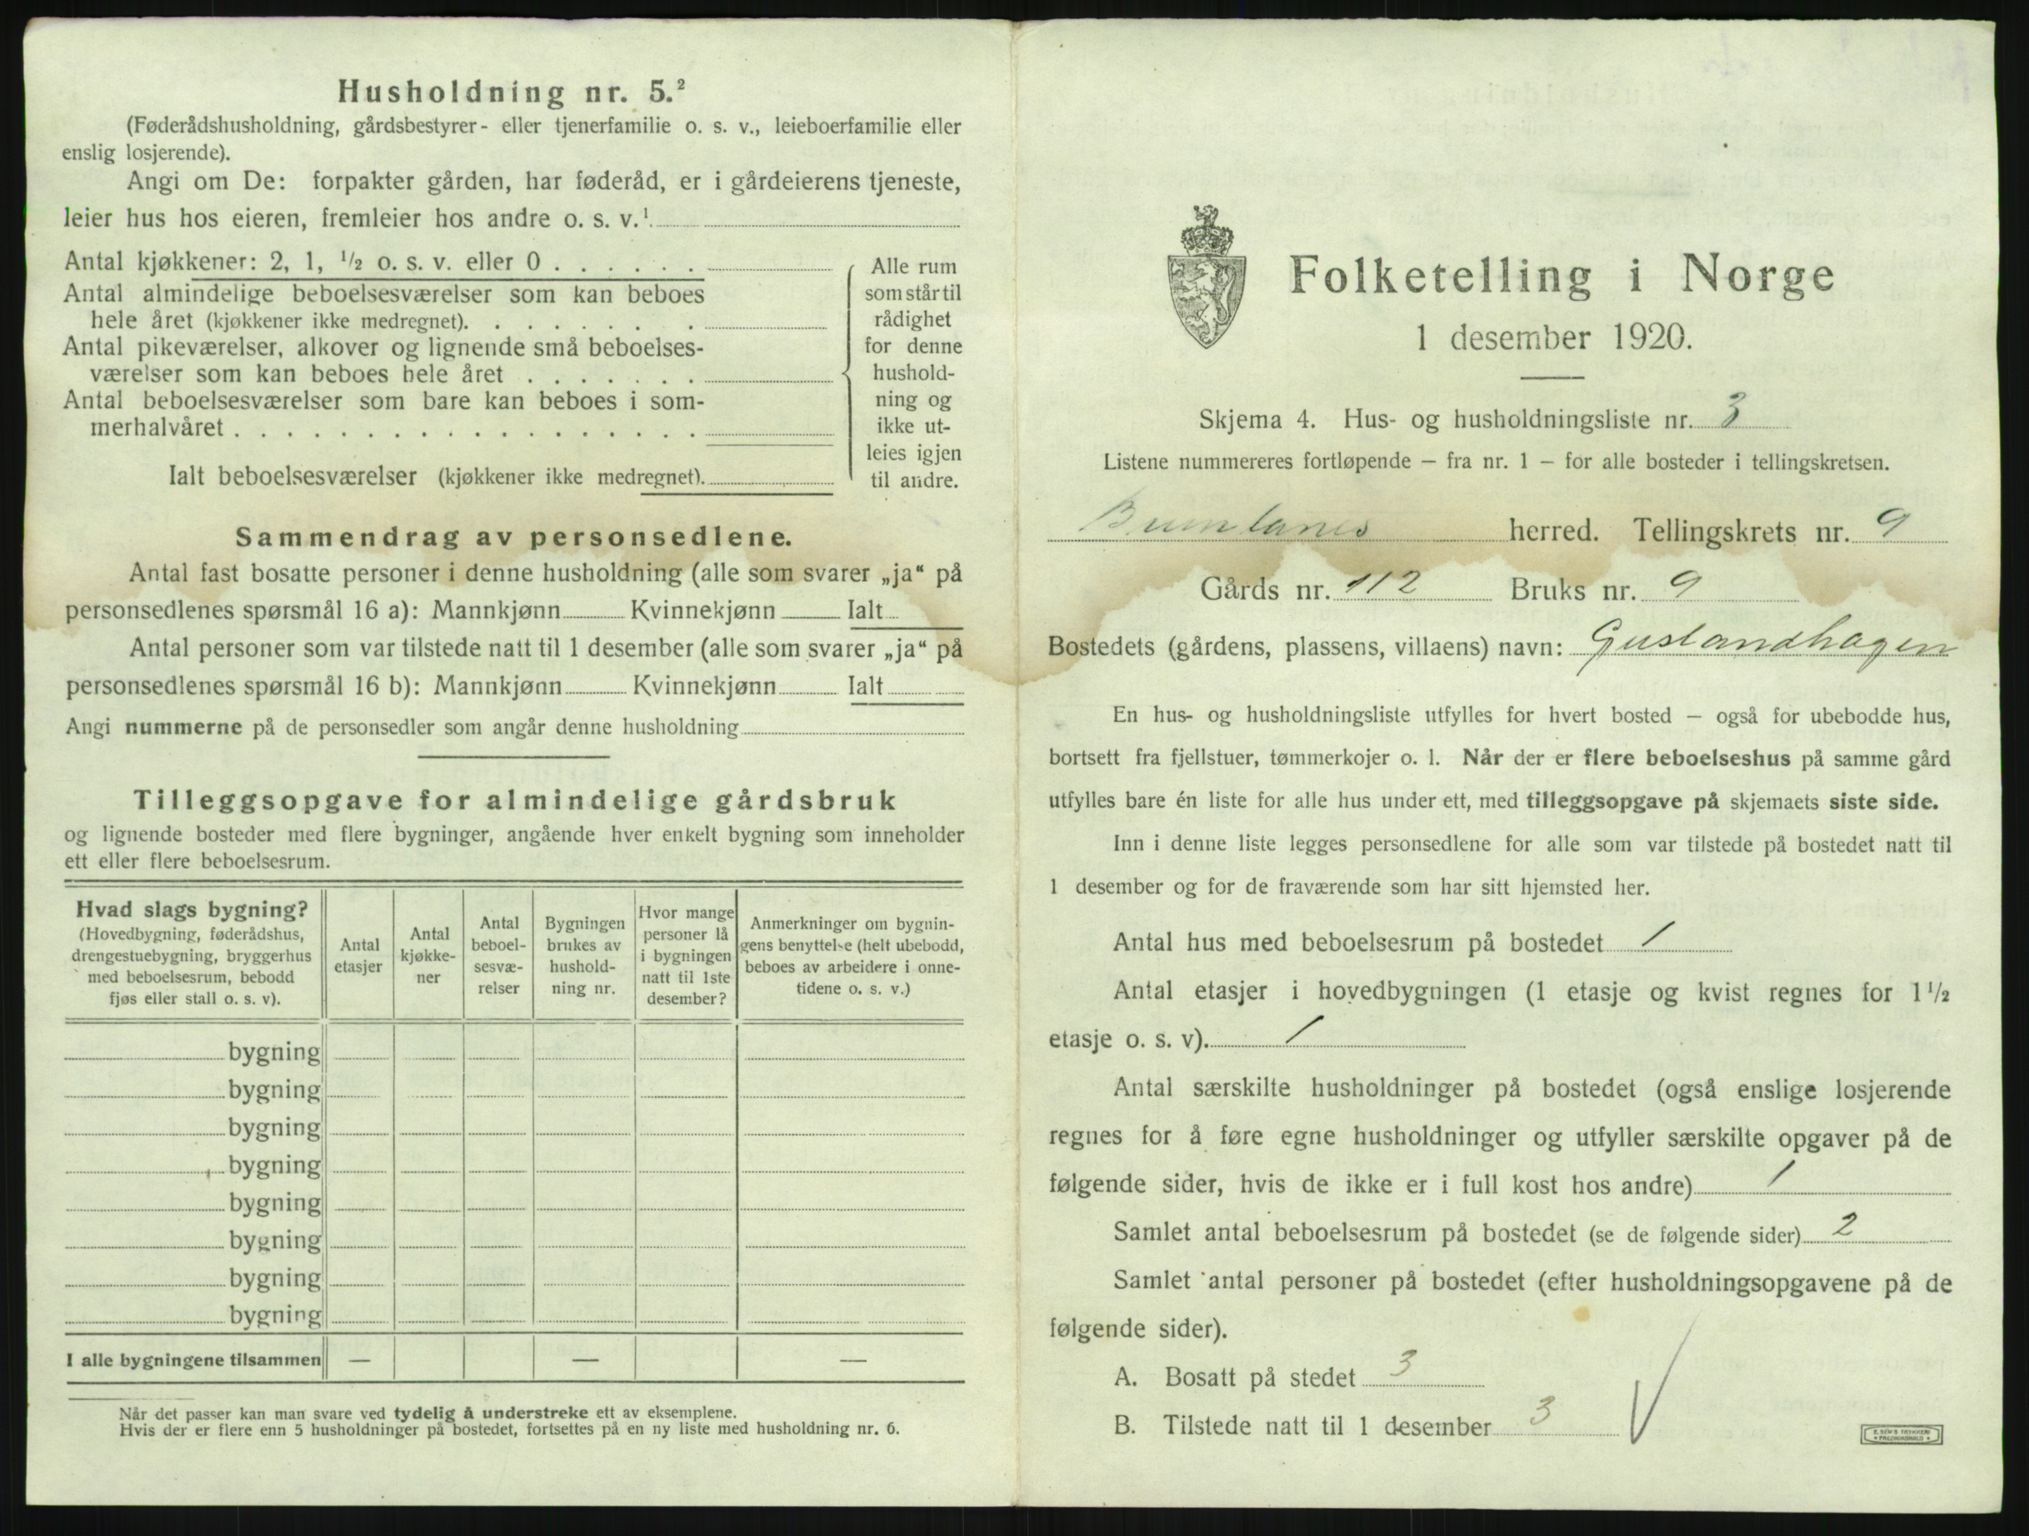 Husholdning nr. 5.²
(Føderådshusholdning, gårdsbestyrer- eller tjenerfamilie o. s. v., leieboerfamilie eller
enslig losjerende).
Angi om De: forpakter gården, har føderåd, er i gårdeierens tjeneste,
leier hus hos eieren, fremleier hos andre o. s. v.¹
Antal kjøkkener: 2, 1, ½ o. s. v. eller 0 . . . . . .
Antal almindelige beboelsesværelser som kan beboes
hele året (kjøkkener ikke medregnet). . . . . . . .
Antal pikeværelser, alkover og lignende små beboelses-
værelser som kan beboes hele året . . . . . . .
Antal beboelsesværelser som bare kan beboes i som-
merhalvåret . . . . . . . . . . . . . . . . . .
Ialt beboelsesværelser (kjøkkener ikke medregnet).
Alle rum
som står til
rådighet
for denne
hushold-
ning og
ikke ut-
leies igjen
til andre.
Sammendrag av personsedlene.
Antal fast bosatte personer i denne husholdning (alle som svarer „ja“ på
personsedlenes spørsmål 16 a): Mannkjønn Kvinnekjønn Ialt
Antal personer som var tilstede natt til 1 desember (alle som svarer „ja“ på
personsedlenes spørsmål 16 b): Mannkjønn Kvinnekjønn Ialt
Angi nummerne på de personsedler som angår denne husholdning
Tilleggsopgave for almindelige gårdsbruk
og lignende bosteder med flere bygninger, angående hver enkelt bygning som inneholder
ett eller flere beboelsesrum.
Hvad slags bygning?
(Hovedbygning, føderådshus,
drengestuebygning, bryggerhus
med beboelsesrum, bebodd
fjøs eller stall o. s. v).
Antal
etasjer
Antal
kjøkke-
ner
Antal
beboel-
sesvæ-
relser
Bygningen
brukes av
hushold-
ning nr.
Hvor mange
personer lå
i bygningen
natt til 1ste
desember?
Anmerkninger om bygnin-
gens benyttelse (helt ubebodd,
beboes av arbeidere i onne-
tidene o. s. v.)
bygning
bygning
bygning
bygning
bygning
bygning
bygning
bygning
I alle bygningene tilsammen — — —
Når det passer kan man svare ved tydelig å understreke ett av eksemplene.
Hvis der er flere enn 5 husholdninger på bostedet, fortsettes på en ny liste med husholdning nr. 6.
Folketelling i Norge
1 desember 1920.
Skjema 4. Hus- og husholdningsliste nr. 3
Listene nummereres fortløpende – fra nr. 1 – for alle bosteder i tellingskretsen.
Brunlanes herred. Tellingskrets nr. 9
Gårds nr. 112 Bruks nr. 9
Bostedets (gårdens, plassens, villaens) navn: Guslandhagen
En hus- og husholdningsliste utfylles for hvert bosted – også for ubebodde hus,
bortsett fra fjellstuer, tømmerkojer o. l. Når der er flere beboelseshus på samme gård
utfylles bare én liste for alle hus under ett, med tilleggsopgave på skjemaets siste side.
Inn i denne liste legges personsedlene for alle som var tilstede på bostedet natt til
1 desember og for de fraværende som har sitt hjemsted her.
Antal hus med beboelsesrum på bostedet 1
Antal etasjer i hovedbygningen (1 etasje og kvist regnes for 1½
etasje o. s. v). 1
Antal særskilte husholdninger på bostedet (også enslige losjerende
regnes for å føre egne husholdninger og utfyller særskilte opgaver på de
følgende sider, hvis de ikke er i full kost hos andre) 1
Samlet antal beboelsesrum på bostedet (se de følgende sider) 2
Samlet antal personer på bostedet (efter husholdningsopgavene på de
følgende sider).
A. Bosatt på stedet 3
B. Tilstede natt til 1 desember 3